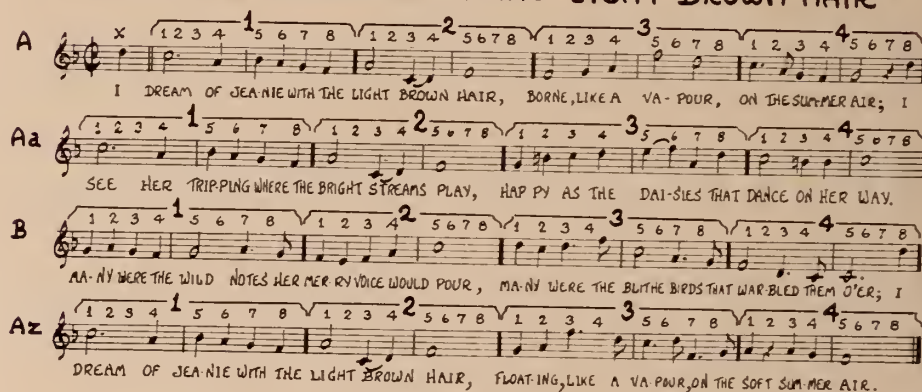 LIGHT BROWN HAIR
A x 1 2 3 4 1 5 6 7 8 1 2 3 4 2 5 6 7 8 1 2 3 4 3 5 6 7 8 1 2 3 4 4 5 6 7 8
I DREAM OF JEA-NIE WITH THE LIGHT BROWN HAIR, BORNE, LIKE A VA-POUR, ON THE SUM-MER AIR; I
Aa 1 2 3 4 1 5 6 7 8 1 2 3 4 2 5 6 7 8 1 2 3 4 3 5 6 7 8 1 2 3 4 4 5 6 7 8
SEE HER TRIP-PING WHERE THE BRIGHT STREAMS PLAY, HAP PY AS THE DAI-SIES THAT DANCE ON HER WAY.
B 1 2 3 4 1 5 6 7 8 1 2 3 4 2 5 6 7 8 1 2 3 4 3 5 6 7 8 1 2 3 4 4 5 6 7 8
MA-NY WERE THE WILD NOTES HER MER-RY VOICE WOULD POUR, MA-NY WERE THE BLITHE BIRDS THAT WAR-BLED THEM O'ER; I
Az 1 2 3 4 1 5 6 7 8 1 2 3 4 2 5 6 7 8 1 2 3 4 3 5 6 7 8 1 2 3 4 4 5 6 7 8
DREAM OF JEA-NIE WITH THE LIGHT BROWN HAIR, FLOAT-ING, LIKE A VA-POUR, ON THE SOFT SUM-MER AIR.